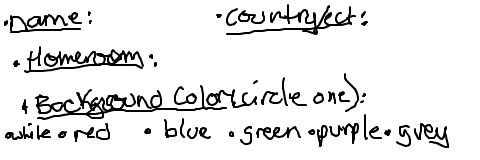 •name: •country/ect:
•Homeroom:
•Background Color(circle one):
•white •red •blue •green •purple •grey